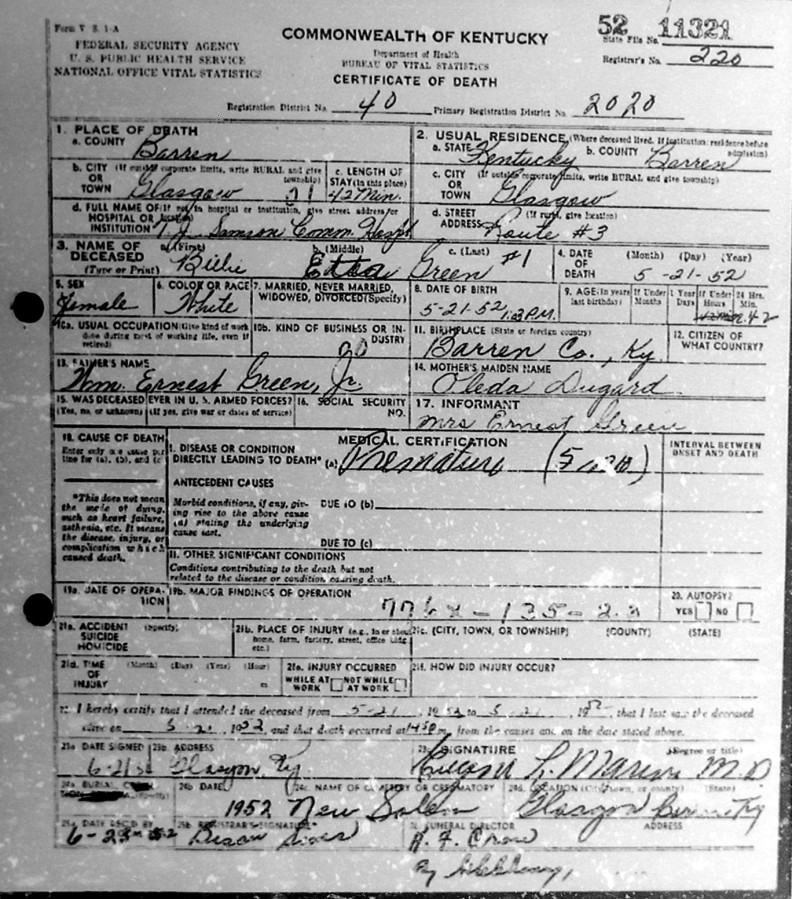 Form V. S. 1-A
FEDERAL SECURITY AGENCY
U. S. PUBLIC HEALTH SERVICE
NATIONAL OFFICE VITAL STATISTICS
COMMONWEALTH OF KENTUCKY
Department of Health
BUREAU OF VITAL STATISTICS
CERTIFICATE OF DEATH
52 11321
State File No.
Registrar's No. 220
Registration District No. 40 Primary Registration District No. 2020
1. PLACE OF DEATH
a. COUNTY Barren
b. CITY (If outside corporate limits, write RURAL and give township)
OR TOWN Glasgow
c. LENGTH OF STAY (in this place) 42 Min.
d. FULL NAME OF (If not in hospital or institution, give street address or
HOSPITAL OR
INSTITUTION T. J. Samson Comm. Hospt
2. USUAL RESIDENCE (Where deceased lived. If institution: residence before admission)
a. STATE Kentucky b. COUNTY Barren
c. CITY (If outside corporate limits, write RURAL and give township)
OR TOWN Glasgow
d. STREET (If rural, give location)
ADDRESS Route #3
3. NAME OF DECEASED (Type or Print)
a. (First) Billie b. (Middle) Etta c. (Last) Green #1
4. DATE OF DEATH (Month) (Day) (Year)
5-21-52
5. SEX Female
6. COLOR OR RACE White
7. MARRIED, NEVER MARRIED, WIDOWED, DIVORCED (Specify)
8. DATE OF BIRTH 5-21-52
9. AGE (In years last birthday) If Under 1 Year Months Days If Under 24 Hrs. Hours Min. 42
10a. USUAL OCCUPATION (Give kind of work done during most of working life, even if retired)
10b. KIND OF BUSINESS OR INDUSTRY
11. BIRTHPLACE (State or foreign country)
Barren Co., Ky.
12. CITIZEN OF WHAT COUNTRY?
13. FATHER'S NAME
Wm. Ernest Green, Jr.
14. MOTHER'S MAIDEN NAME
Oleda Dugard
15. WAS DECEASED EVER IN U. S. ARMED FORCES?
(Yes, no, or unknown) (If yes, give war or dates of service)
16. SOCIAL SECURITY NO.
17. INFORMANT
Mrs Ernest Green
18. CAUSE OF DEATH
Enter only one cause per line for (a), (b), and (c)
*This does not mean the mode of dying, such as heart failure, asthenia, etc. It means the disease, injury, or complication which caused death.
MEDICAL CERTIFICATION
I. DISEASE OR CONDITION
DIRECTLY LEADING TO DEATH* (a) Premature
ANTECEDENT CAUSES
Morbid conditions, if any, giving rise to the above cause (a) stating the underlying cause last.
DUE TO (b)
DUE TO (c)
II. OTHER SIGNIFICANT CONDITIONS
Conditions contributing to the death but not related to the disease or condition causing death.
INTERVAL BETWEEN ONSET AND DEATH
19a. DATE OF OPERATION
19b. MAJOR FINDINGS OF OPERATION
20. AUTOPSY?
YES NO
21a. ACCIDENT SUICIDE HOMICIDE (Specify)
21b. PLACE OF INJURY (e.g., in or about home, farm, factory, street, office bldg etc.)
21c. (CITY, TOWN, OR TOWNSHIP) (COUNTY) (STATE)
21d. TIME OF INJURY (Month) (Day) (Year) (Hour) m
21e. INJURY OCCURRED
WHILE AT WORK NOT WHILE AT WORK
21f. HOW DID INJURY OCCUR?
22. I hereby certify that I attended the deceased from 5-21 1952 to 5-21 1952, that I last saw the deceased
alive on 5-21 1952, and that death occurred at m., from the causes and on the date stated above.
23a DATE SIGNED 23b. ADDRESS 23c. SIGNATURE (Degree or title)
Glasgow Ky M.D
24b DATE 24c. NAME OF CEMETERY OR CREMATORY 24d. LOCATION (City, town, or county) (State)
1952 New Salem Glasgow
25a. DATE REC'D BY 25b. REGISTRAR'S SIGNATURE FUNERAL DIRECTOR ADDRESS
6-23-52 A. F. Crow
By